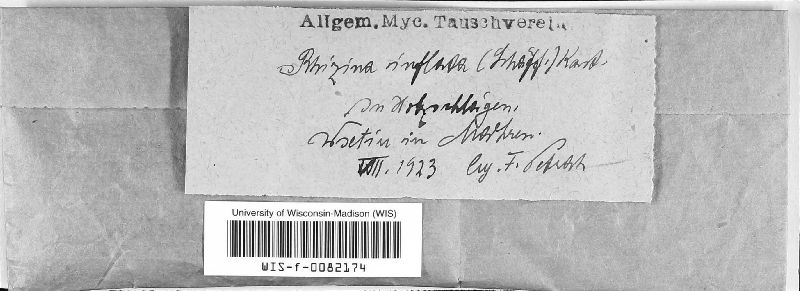 Allgem. Myc. Tauschverein
Rhizina inflata (Schäff.) Karst.
In Holzschlägen.
Wsetin in Mähren.
VIII. 1923 leg. F. Petrak
University of Wisconsin-Madison (WIS)
WIS-f-0082174